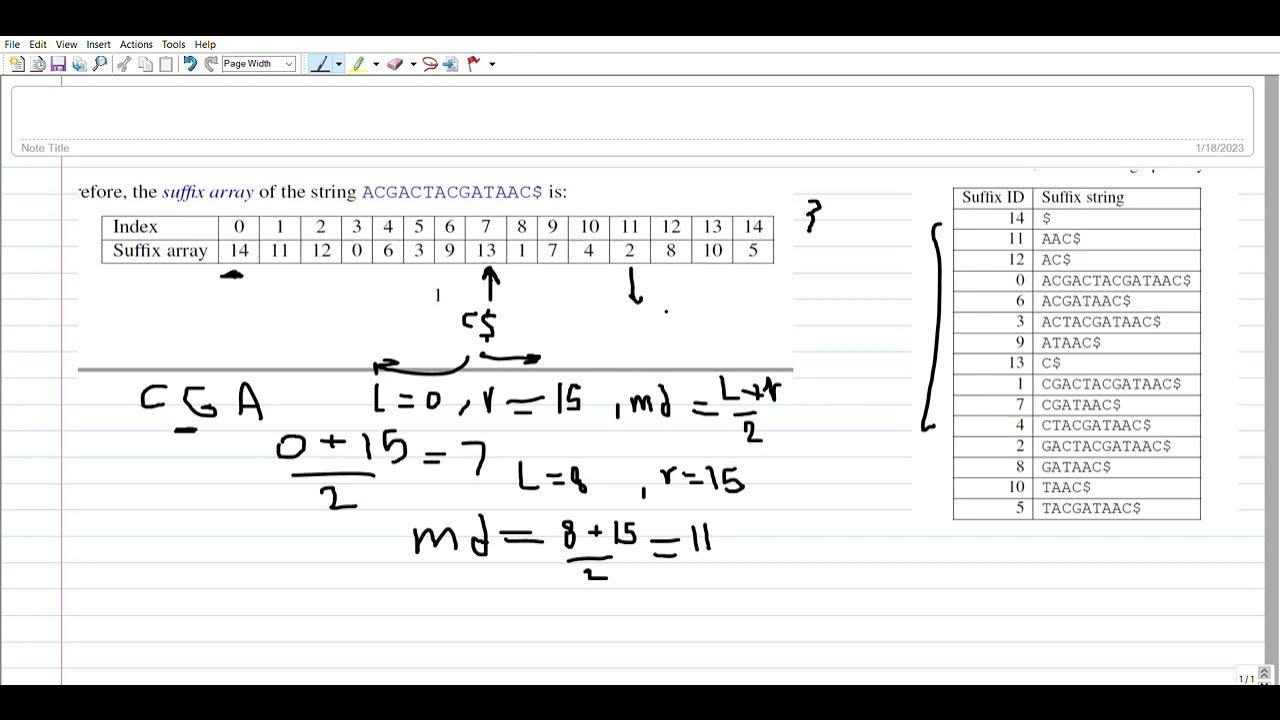 File Edit View Insert Actions Tools Help
Page Width
Note Title
1/18/2023
efore, the suffix array of the string ACGACTACGATAAC$ is:
Index 0 1 2 3 4 5 6 7 8 9 10 11 12 13 14
Suffix array 14 11 12 0 6 3 9 13 1 7 4 2 8 10 5
1
C$
CGA L=0, r=15, md=L+r/2
0+15/2=7
L=8, r=15
md=8+15/2=11
Suffix ID Suffix string
14 $
11 AAC$
12 AC$
0 ACGACTACGATAAC$
6 ACGATAAC$
3 ACTACGATAAC$
9 ATAAC$
13 C$
1 CGACTACGATAAC$
7 CGATAAC$
4 CTACGATAAC$
2 GACTACGATAAC$
8 GATAAC$
10 TAAC$
5 TACGATAAC$
1/1